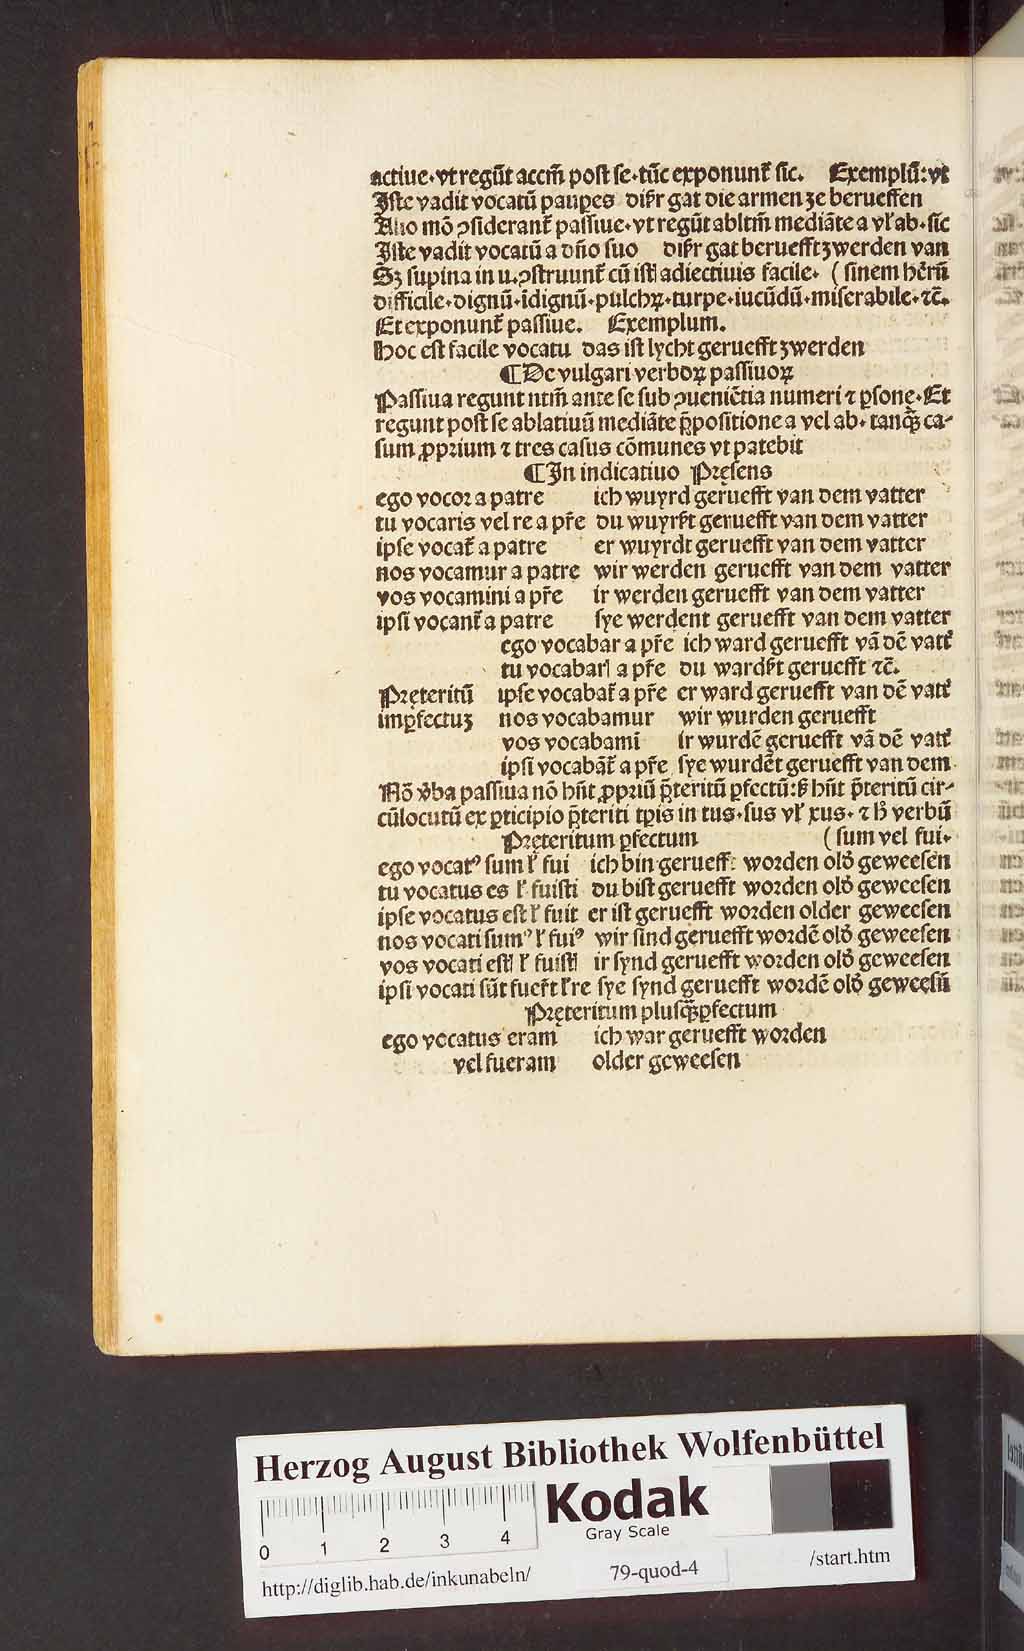 actiue·vt regūt accm̄ post se·tūc exponunt̃ sic. Exemplū: vt
Iste vadit vocatū paupes diſzr gat die armen ze berueffen
Alio mō ꝯsiderant̃ passiue·vt regūt abltm̄ mediāte a vl̓ ab·sic
Iste vadit vocatū a dño suo diſzr gat berueft zwerden van
Sz supina in u·ꝯstruunt̃ cū istꝭ adiectiuis facile· (sinem hẽrñ
difficile·dignū·īdignū·pulchꝝ·turpe·iucūdū·miserabile·⁊c̄.
Et exponunt̃ passiue. Exemplum.
Hoc est facile vocatu das ist lycht gerueft zwerden
¶De vulgari verboꝝ passiuoꝝ
Passiua regunt ntm̄ ante se sub ꝯueniētia numeri ⁊ ꝑsonę·Et
regunt post se ablatiuū mediāte p̄positione a vel ab·tanqꝫ̄ ca-
sum ꝓprium ⁊ tres casus cōmunes vt patebit
¶In indicatiuo Pręsens
ego vocor a patre ich wuyrd geruefft van dem vatter
tu vocaris vel re a pr̄e du wuyrſt geruefft van dem vatter
ipse vocat̃ a patre er wuyrdt geruefft van dem vatter
nos vocamur a patre wir werden geruefft van dem vatter
vos vocamini a pr̄e ir werden geruefft van dem vatter
ipsi vocant̃ a patre sye werdent geruefft van dem vatter
ego vocabar a pr̄e ich ward geruefft vā dē vatt̓
tu vocabarꝭ a pr̄e du wardſt geruefft ⁊c̄.
Pręteritū ipse vocabat̃ a pr̄e er ward geruefft van dē vatt̓
imꝑfectuꝫ nos vocabamur wir wurden geruefft
vos vocabami ir wurdē geruefft vā dē vatt̓
ipsi vocabāt̃ a pr̄e sye wurdēt geruefft van dem
Nō v̓ba passiua nō hñt ꝓpriū p̄teritū ꝑfectū: sꝫ hñt p̄teritū cir-
cūlocutū ex ꝑticipio p̄teriti tꝑis in tus·sus vl̓ xus·⁊ h̓ verbū
Pręteritum ꝑfectum (sum vel fui·
ego vocatꝰ sum l̓ fui ich bin gerueff: worden old̓ geweesen
tu vocatus es l̓ fuisti du bist gerueft worden old̓ geweesen
ipse vocatus est l̓ fuit er ist gerueft worden older geweesen
nos vocati sumꝰ l̓ fuiꝰ wir sind gerueft wordē old̓ geweesen
vos vocati estꝭ l̓ fuistꝭ ir synd gerueft worden old̓ geweesen
ipsi vocati sūt fuer̄t l̓ re sye synd gerueft wordē old̓ geweesñ
Pręteritum plusqꝫ̄ꝑfectum
ego vocatus eram ich war gerueft worden
vel fueram older geweesen
Herzog August Bibliothek Wolfenbüttel
Kodak
Gray Scale
0 1 2 3 4
http://diglib.hab.de/inkunabeln/ 79-quod-4 /start.htm